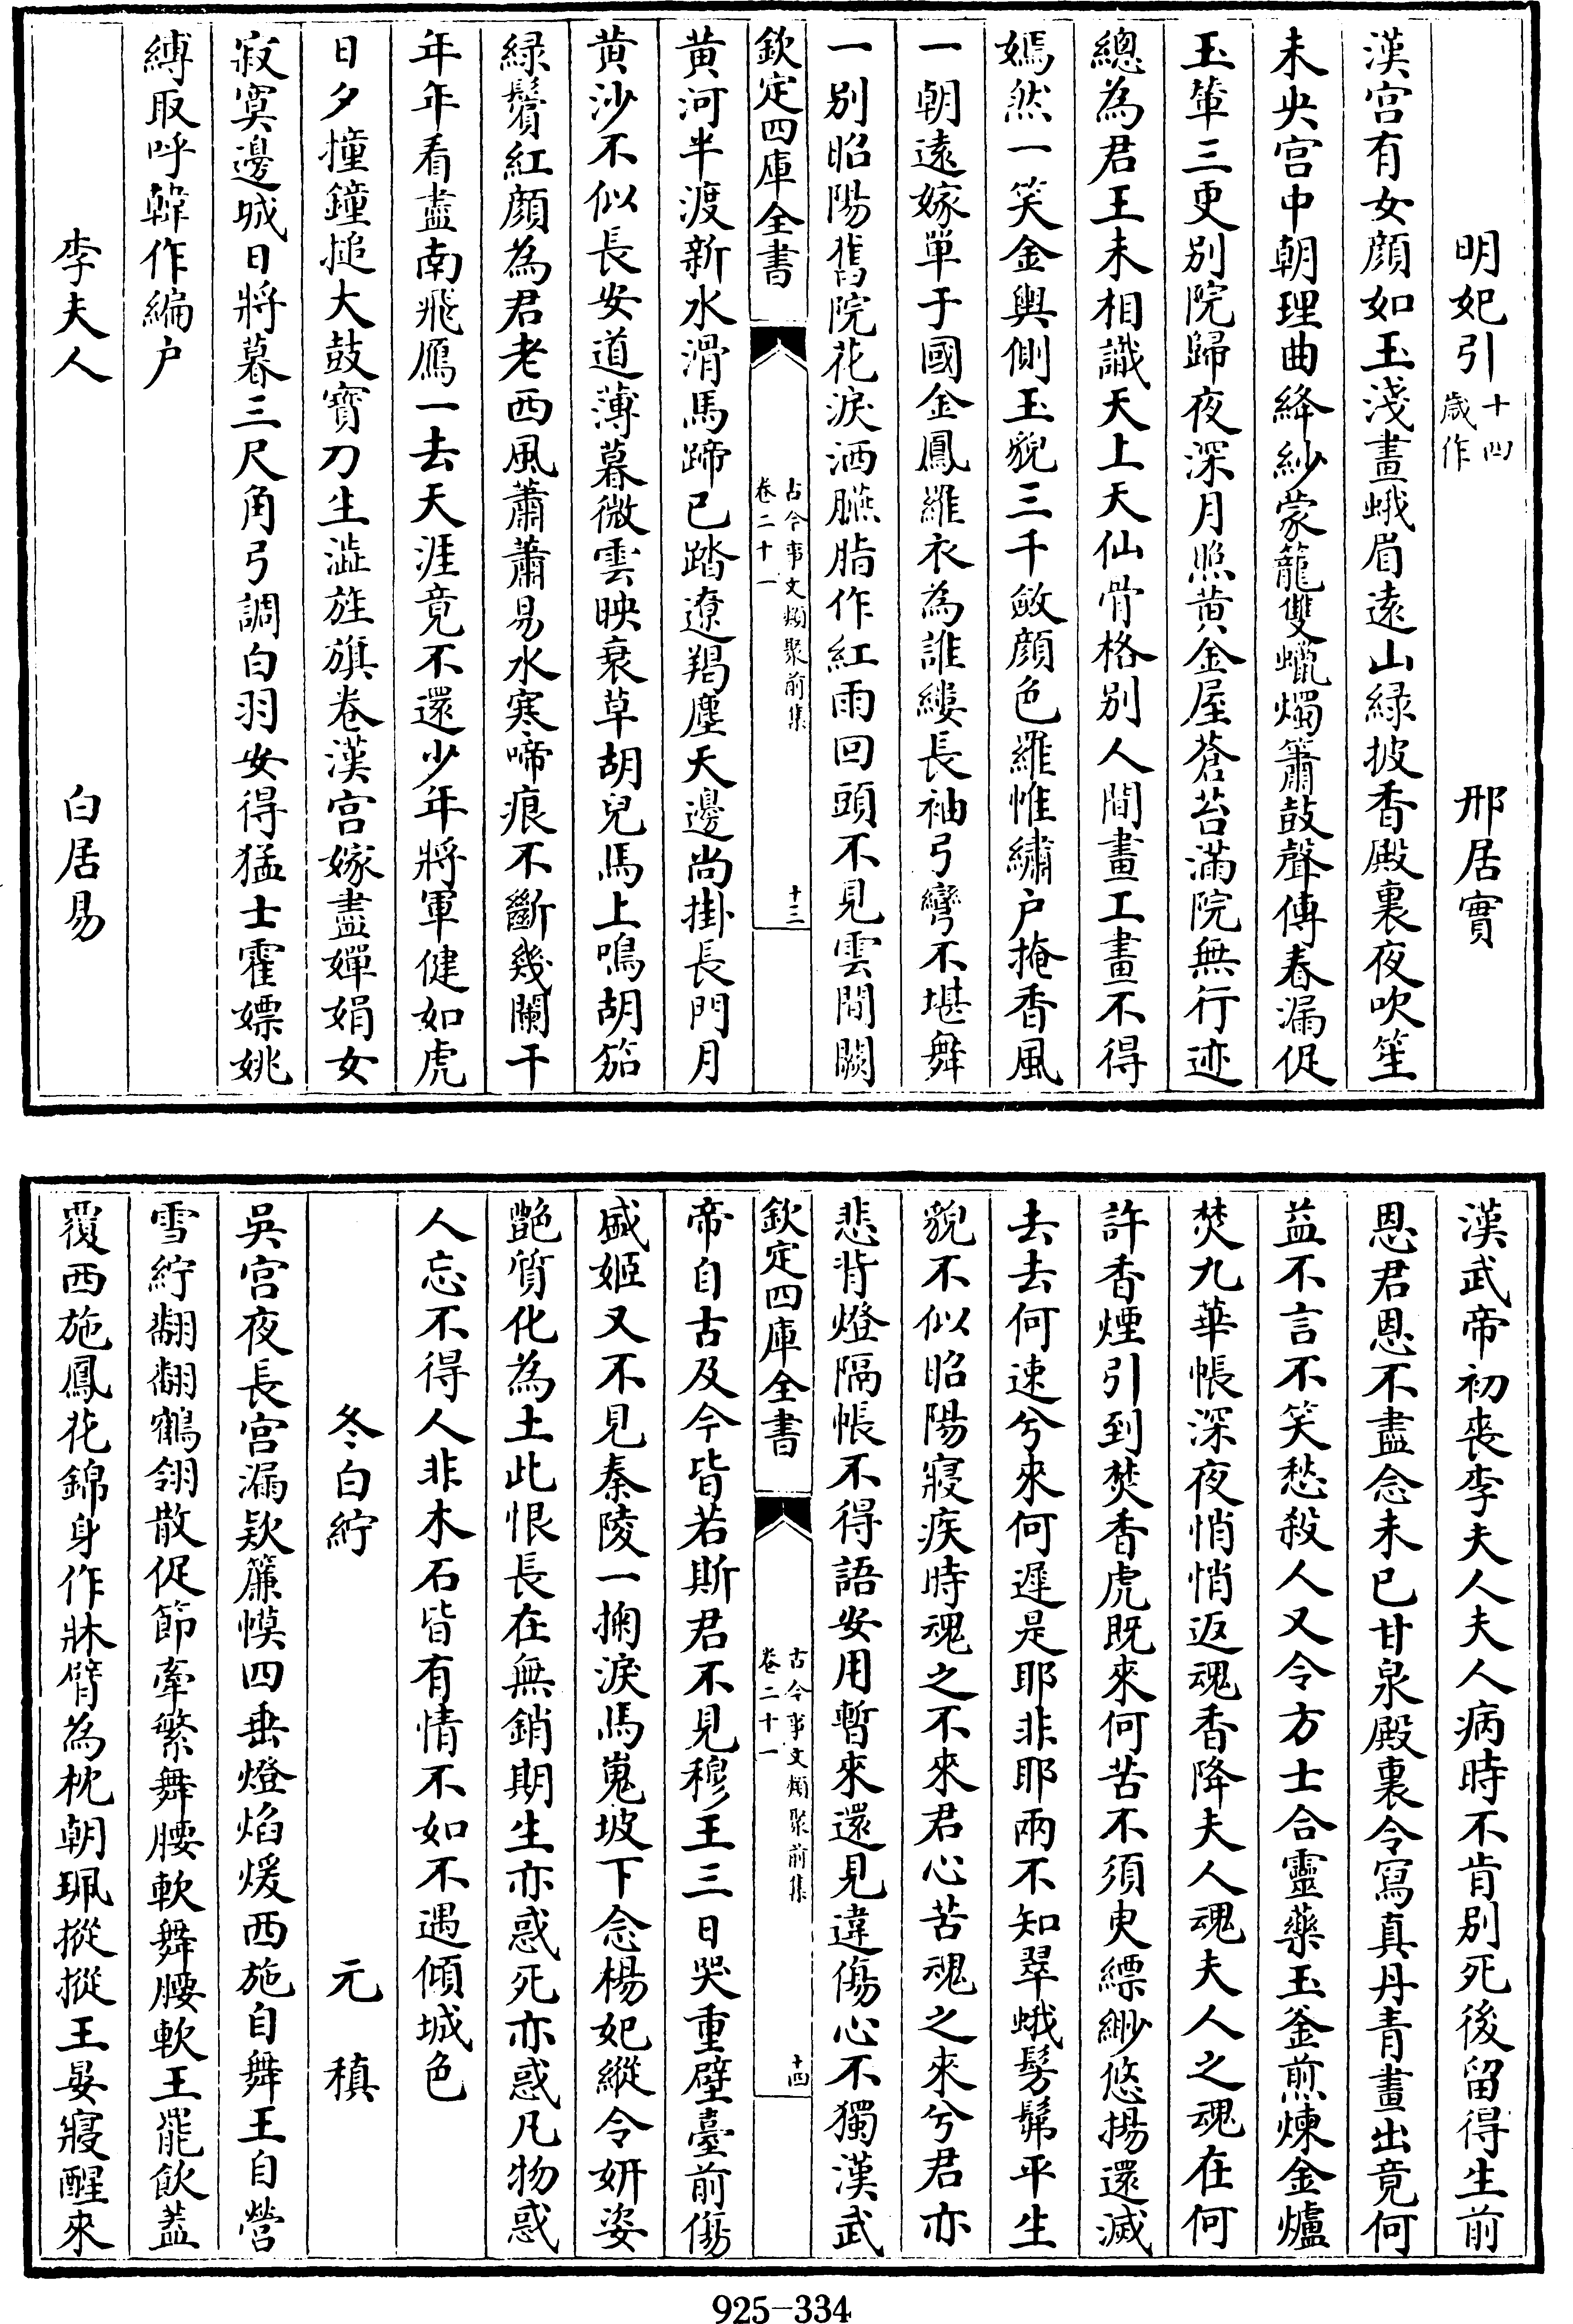 明妃引 十四歲作 邢居實
漢宮有女顔如玉淺畫蛾眉遠山緑披香殿裏夜吹笙
未央宮中朝理曲絳紗蒙籠雙蠟燭簫鼓聲傳春漏促
玉輦三更别院歸夜深月照黄金屋蒼苔滿院無行迹
總為君王未相識天上天仙骨格别人間畫工畫不得
嫣然一笑金輿側玉貌三千斂顔色羅帷繡户掩香風
一朝遠嫁單于國金鳳羅衣為誰縷長袖弓彎不堪舞
一别昭陽舊院花淚洒臙脂作紅雨回頭不見雲間闕
欽定四庫全書 古今事文類聚前集 卷二十一 十三
黄河半渡新水滑馬蹄已踏遼羯塵天邊尚掛長門月
黄沙不似長安道薄暮微雲映衰草胡兒馬上鳴胡笳
緑鬢紅顔為君老西風蕭蕭易水寒啼痕不斷幾闌干
年年看盡南飛鴈一去天涯竟不還少年將軍健如虎
日夕撞鐘搥大鼓寳刀生澁旌旗卷漢宮嫁盡嬋娟女
寂寞邊城日將暮三尺角弓調白羽安得猛士霍嫖姚
縛取呼韓作編户
李夫人 白居易
漢武帝初喪李夫人夫人病時不肯别死後留得生前
恩君恩不盡念未已甘泉殿裏令寫真丹青畫出竟何
益不言不笑愁殺人又令方士合靈藥玉釜煎煉金爐
焚九華帳深夜悄悄返魂香降夫人魂夫人之魂在何
許香煙引到焚香處既來何苦不須臾縹緲悠揚還滅
去去何速兮來何遲是耶非耶兩不知翠蛾髣髴平生
貌不似昭陽寢疾時魂之不來君心苦魂之來兮君亦
悲背燈隔帳不得語安用暫來還見違傷心不獨漢武
欽定四庫全書 古今事文類聚前集 卷二十一 十四
帝自古及今皆若斯君不見穆王三日哭重璧臺前傷
盛姬又不見秦陵一掬淚馬嵬坡下念楊妃縱令妍姿
艶質化為土此恨長在無銷期生亦惑死亦惑凡物惑
人忘不得人非木石皆有情不如不遇傾城色
冬白紵 元稹
吳宮夜長宮漏欵簾幙四垂燈焰煖西施自舞王自營
雪紵翻翻鶴翎散促節牽繁舞腰軟舞腰軟王罷飲蓋
覆西施鳳花錦身作牀臂為枕朝珮摐摐王晏寢醒來
925-334